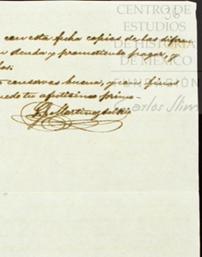 36
CENTRO DE
ESTUDIOS
DE HISTORIA
DE MÉXICO
con esta fecha copias de las difren
deuda y prometiendo pagar, y
conservas buena, y
quedo tu afectísimo primo
Martinez del Rio
FUNDACIÓN
Carlos Slim